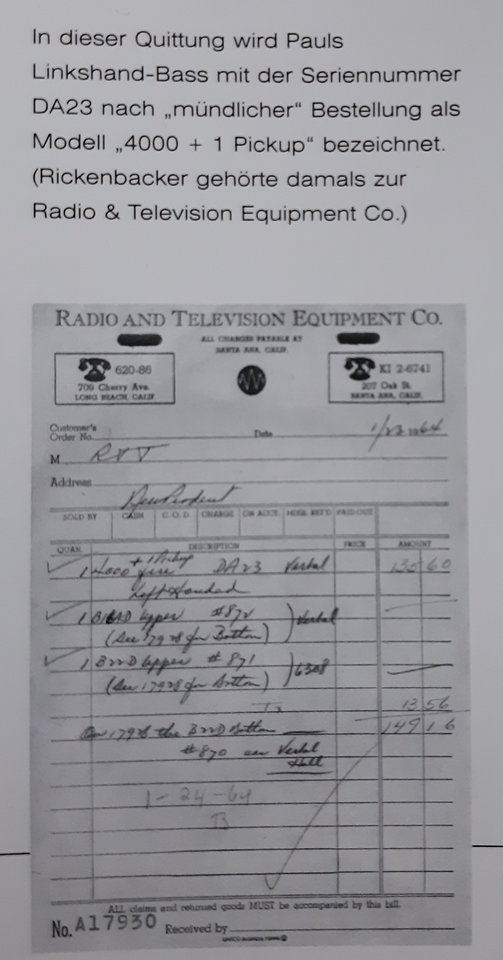 In dieser Quittung wird Pauls
Linkshand-Bass mit der Seriennummer
DA23 nach „mündlicher“ Bestellung als
Modell „4000 + 1 Pickup“ bezeichnet.
(Rickenbacker gehörte damals zur
Radio & Television Equipment Co.)
RADIO AND TELEVISION EQUIPMENT CO.
ALL CHARGES PAYABLE AT
SANTA ANA, CALIF.
620-86
709 Cherry Ave.
LONG BEACH, CALIF.
KI 2-6741
207 Oak St.
SANTA ANA, CALIF.
Customer's
Order No. Date 1/23 1964
M
Address
SOLD BY CASH C.O.D. CHARGE ON ACCT. MDSE. RET'D PAID OUT
QUAN. DESCRIPTION PRICE AMOUNT
+ 1 Pickup
1 4000 DA23 Verbal 135 60
Left Handed
1 Upper #872 Verbal
(See 17928 for Bottom)
1 B22D Upper # 871 6308
(See 17928 for Bottom)
13 56
On 17928 the B22D Bottom 149 16
#870 Verbal
Hall
1-24-64
ALL claims and returned goods MUST be accompanied by this bill.
No. A17930 Received by